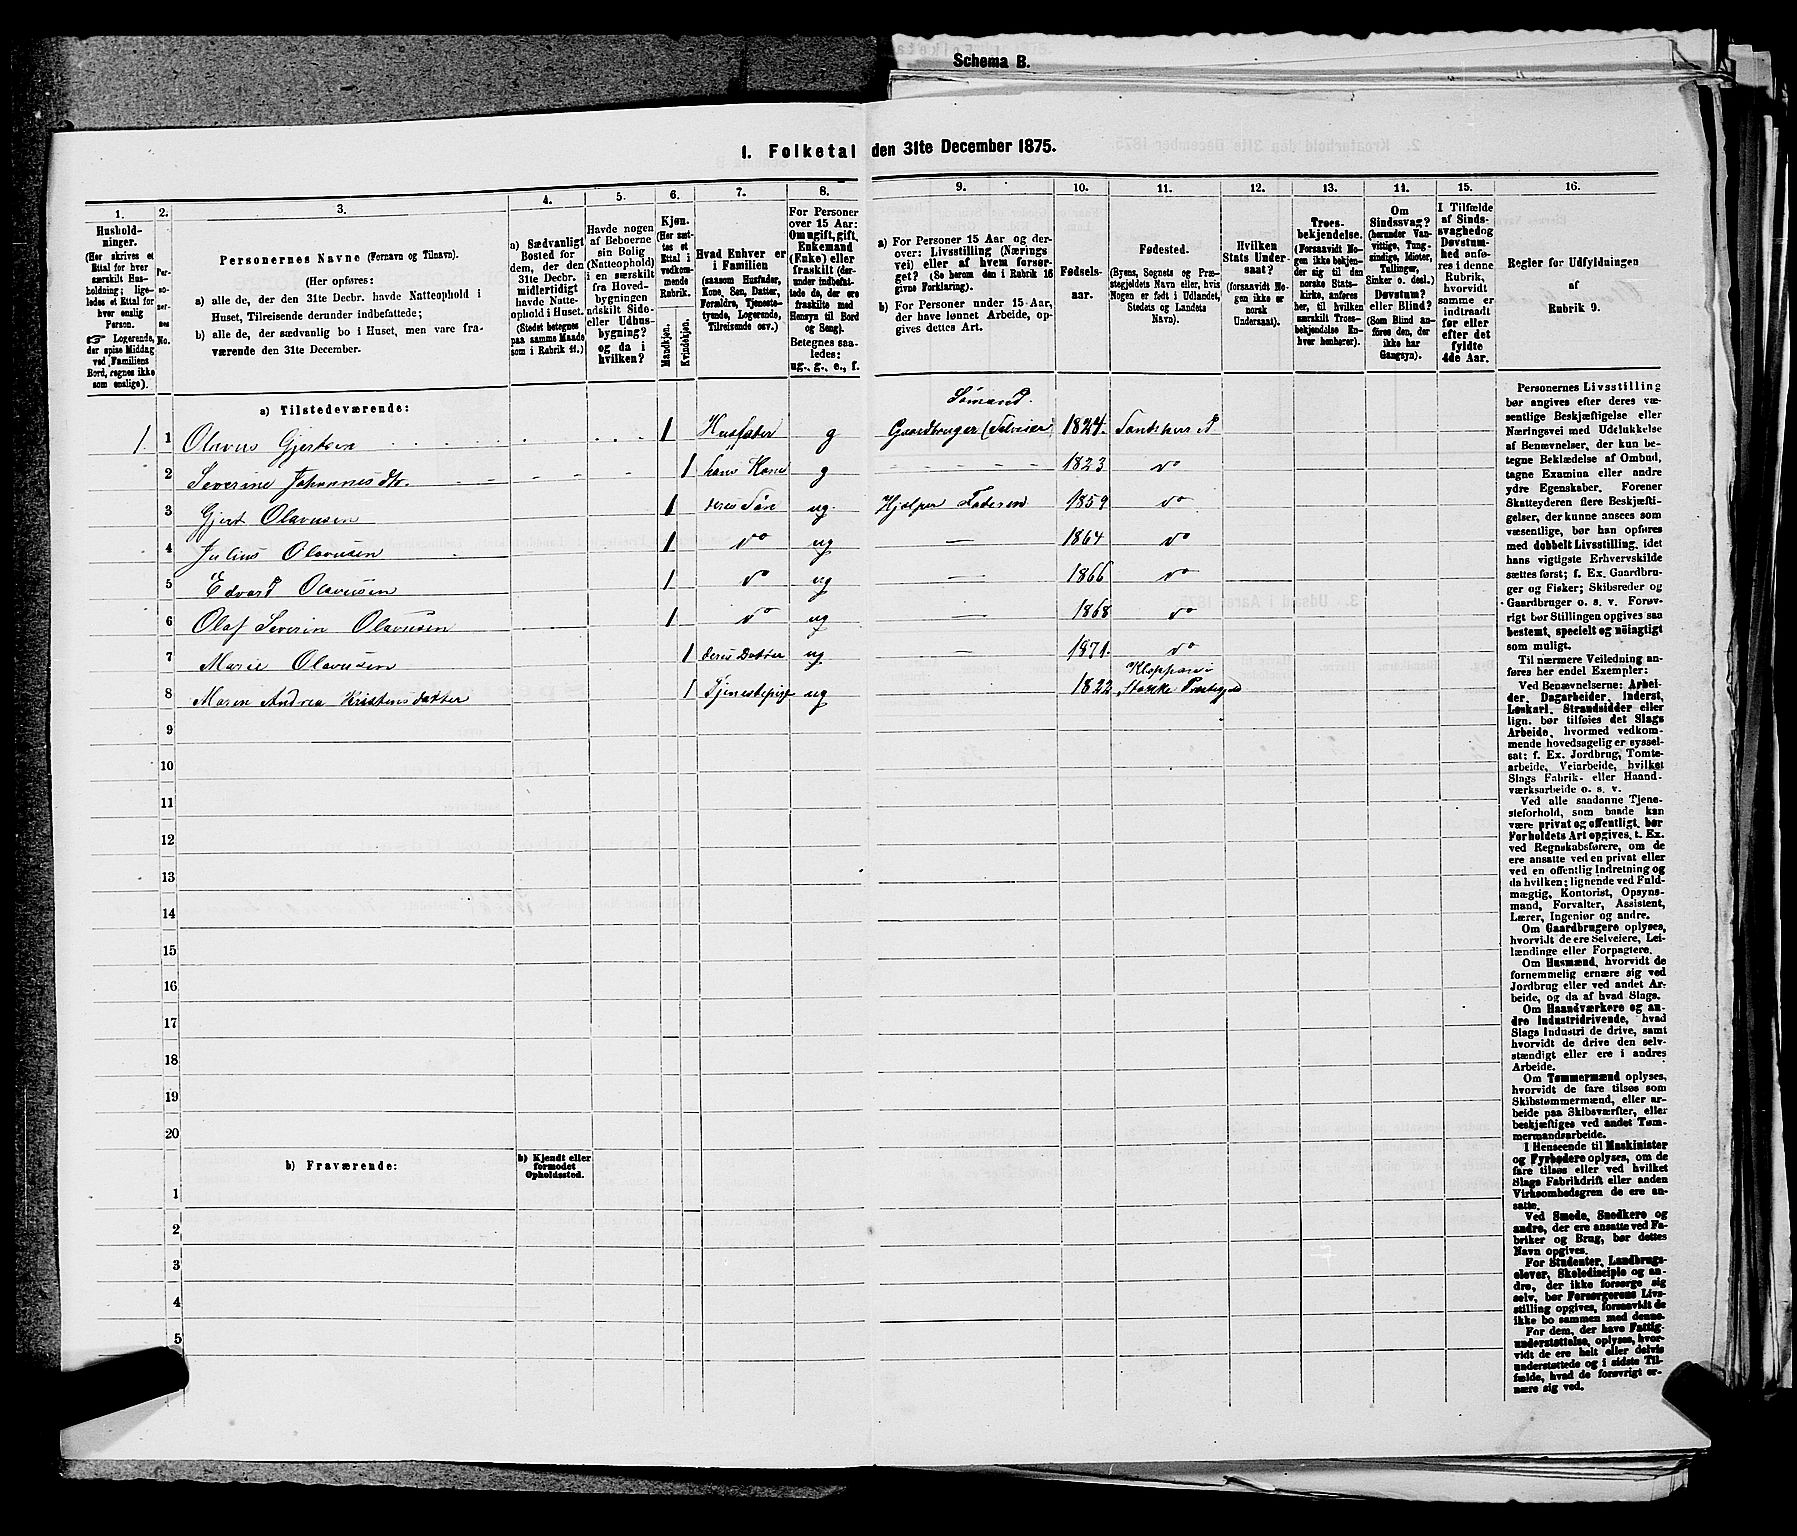 Schema B.
1. Folketal den 31te December 1875.
1.
2.
3.
4.
5.
6.
7.
8.
9.
10.
11.
12.
13.
14.
15.
16.
Hushold-
ninger.
(Her skrives et
Ettal for hver
særskilt Hus-
holdning; lige-
ledes et Ettal for
hver enslig
Person.
☞ Logerende,
der spise Middag
ved Familiens
Bord, regnes ikke
som enslige).
Per-
so-
ner-
nes
No.
Personernes Navne (Fornavn og Tilnavn).
(Her opføres:
a) alle de, der den 31te Decbr. havde Natteophold i
Huset, Tilreisende derunder indbefattede;
b) alle de, der sædvanlig bo i Huset, men vare fra-
værende den 31te December.
a) Sædvanligt
Bosted for
dem, der den
31te Decbr.
midlertidigt
havde Natte-
ophold i Huset.
(Stedet betegnes
paa samme Maade
som i Rubrik 11.)
Havde nogen
af Beboerne
sin Bolig
(Natteophold)
i en særskilt
fra Hoved-
bygningen
adskilt Side-
eller Udhus-
bygning?
og da i
hvilken?
Kjøn.
(Her sæt-
tes et
Ettal i
vedkom-
mende
Rubrik.
Mandkjøn.
Kvindekjøn.
Hvad Enhver er
i Familien
(saasom Husfader,
Kone, Søn, Datter,
Forældre, Tjeneste-
tyende, Logerende,
Tilreisende osv.)
For Personer
over 15 Aar:
Om ugift, gift,
Enkemand
(Enke) eller
fraskilt (der-
under indbefat-
tede de, der ere
fraskilte med
Hensyn til Bord
og Seng).
Betegnes saa-
ledes:
ug., g., e., f.
a) For Personer 15 Aar og der-
over: Livsstilling (Nærings
vei) eller af hvem forsør-
get? (Se herom den i Rubrik 16
givne Forklaring).
b) For Personer under 15 Aar,
der have lønnet Arbeide, op-
gives dettes Art.
Fødsels-
aar.
Fødested.
(Byens, Sognets og Præ-
stegjeldets Navn eller, hvis
Nogen er født i Udlandet,
Stedets og Landets
Navn).
Hvilken
Stats Under-
saat?
(forsaavidt No-
gen ikke er
norsk
Undersaat).
Troes-
bekjendelse.
(Forsaavidt No-
gen ikke bekjen-
der sig til den
norske Stats-
kirke, anføres
her, til hvilken
særskilt Troes-
bekjendelse En-
hver henhører).
Om
Sindssvag?
(herunder Van-
vittige, Tung-
sindige, Idioter,
Tullinger,
Sinker o. desl.)
Døvstum?
eller Blind?
(Som Blind an-
føres den, der
ikke har
Gangsyn).
I Tilfælde
af Sinds-
svaghed og
Døvstum-
hed anfø-
res i denne
Rubrik,
hvorvidt
samme er
indtraadt
før eller
efter det
fyldte
4de Aar.
Regler for Udfyldningen
af
Rubrik 9.
a) Tilstedeværende:
Sømand.
1. 1 Olavus Gjertsen 1 Husfader g Gaardbruger (Selveier) 1824. Sandeherred
2 Severine Johannesdtr. 1 hans Kone g 1823 do
3 Gjert Olavusen 1 deres Søn ug Hjælper Faderen 1859 do
4 Julius Olavusen 1 do ug — 1864 do
5 Edvard Olavusen 1 do ug — 1866 do
6 Olaf Severin Olavusen 1 do ug — 1868 do
7 Marie Olavusen 1 deres Datter ug — 1871. do
8 Maren Andrea Kristensdatter 1 Tjenestepige ug 1822 Stokke Præstegjd
9
10
11
12
13
14
15
16
17
18
19
20
b) Fraværende:
b) Kjendt eller
formodet
Opholdssted.
1
2
3
4
5
Personernes Livsstilling
bør angives efter deres væ-
sentlige Beskjæftigelse eller
Næringsvei med Udelukkelse
af Benævnelser, der kun be-
tegne Beklædelse af Ombud,
tagne Examina eller andre
ydre Egenskaber. Forener
Skatteyderen flere Beskjæfti-
gelser, der kunne ansees som
væsentlige, bør han opføres
med dobbelt Livsstilling, idet
hans vigtigste Erhvervskilde
sættes først; f. Ex. Gaardbru-
ger og Fisker; Skibsreder og
Gaardbruger o. s. v. Forøv-
rigt bør Stillingen opgives saa
bestemt, specielt og nøiagtigt
som muligt.
Til nærmere Veiledning an-
føres her endel Exempler:
Ved Benævnelserne: Arbei-
der, Dagarbeider, Inderst,
Løskarl, Strandsidder eller
lign. bør tilføies det Slags
Arbeide, hvormed vedkom-
mende hovedsagelig er syssel-
sat; f. Ex. Jordbrug, Tomte-
arbeide, Veiarbeide, hvilket
Slags Fabrik- eller Haand-
værksarbeide o. s. v.
Ved alle saadanne Tjene-
steforhold, som baade kan
være privat og offentligt, bør
Forholdets Art opgives, t. Ex.
ved Regnskabsførere, om de
ere ansatte ved en privat eller
ved en offentlig Indretning og
da hvilken; lignende ved Fuld-
mægtig, Kontorist, Opsyns-
mand, Forvalter, Assistent,
Lærer, Ingeniør og andre.
Om Gaardbrugere oplyses,
hvorvidt de ere Selveiere, Lei-
lændinge eller Forpagtere.
Om Husmænd, hvorvidt de
fornemmelig ernære sig ved
Jordbrug eller ved andet Ar-
beide, og da af hvad Slags.
Om Haandværkere og an-
dre Industridrivende, hvad
Slags Industri de drive, samt
hvorvidt de drive den selv-
stændigt eller ere i andres
Arbeide.
Om Tømmermænd oplyses,
hvorvidt de fare tilsøs som
Skibstømmermænd, eller ar-
beide paa Skibsværfter, eller
beskjæftiges ved andet Tøm-
mermandsarbeide.
I Henseende til Maskinister
og Fyrbødere oplyses, om de
fare tilsøs eller ved hvilket
Slags Fabrikdrift eller anden
Virksombødsgren de ere an-
satte.
Ved Smede, Snedkere og
andre, der ere ansatte ved Fa-
briker og Brug, bør dettes
Navn opgives.
For Studenter, Landbrugs-
elever, Skoledisciple og an-
dre, der ikke forsørge sig
selv, bør Forsørgerens Livs-
stilling opgives, forsaavidt de
ikke bo sammen med denne.
For dem, der have Fattig-
understøttelse, oplyses, hvor-
vidt de ere helt eller delvis
understøttede og i sidste Til-
fælde, hvad de forøvrigt er-
nære sig ved.